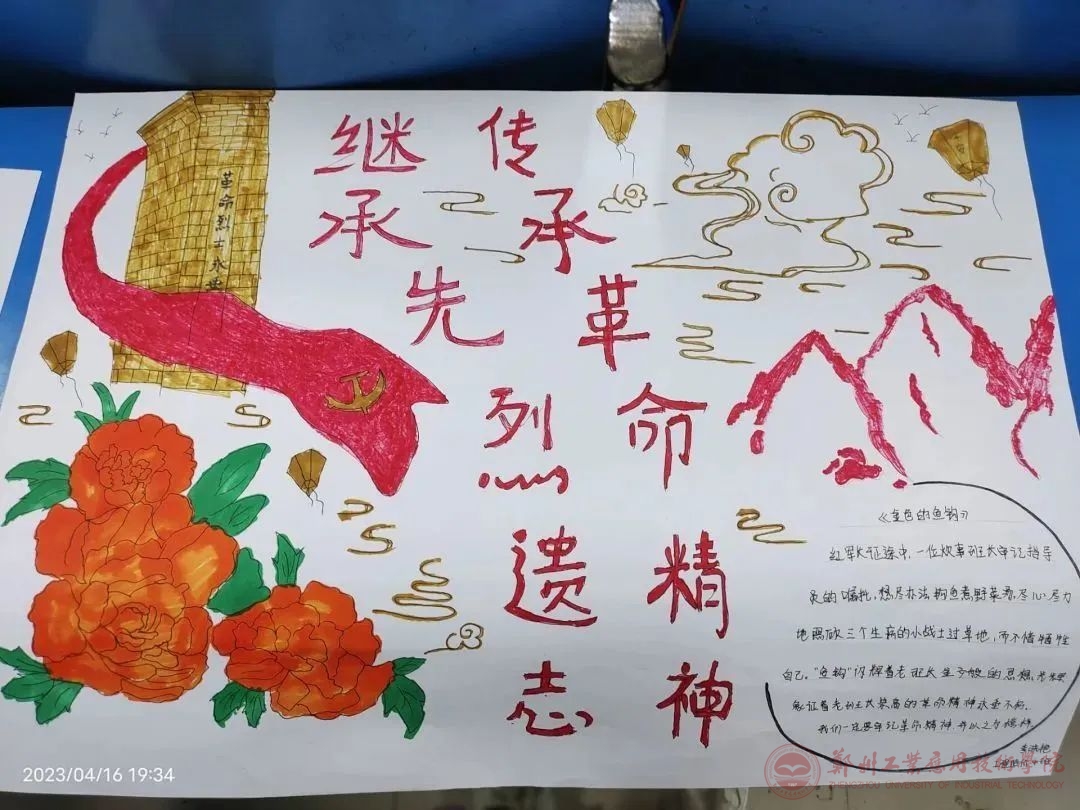 继承先烈遗志
传承革命精神
革命烈士永垂
《金色的鱼钩》
红军长征途中,一位炊事班长牢记指导
员的嘱托,想尽办法钓鱼煮野菜,尽心尽力
地照顾三个生病的小战士过草地,而不惜牺牲
自己。"鱼钩"闪辉着老班长的思想,
象征着老班长崇高的革命精神永垂不朽.
我们一定要牢记革命精神,并以之为榜样.
郑州工业应用技术学院
ZHENGZHOU UNIVERSITY OF INDUSTRIAL TECHNOLOGY
2023/04/16 19:34